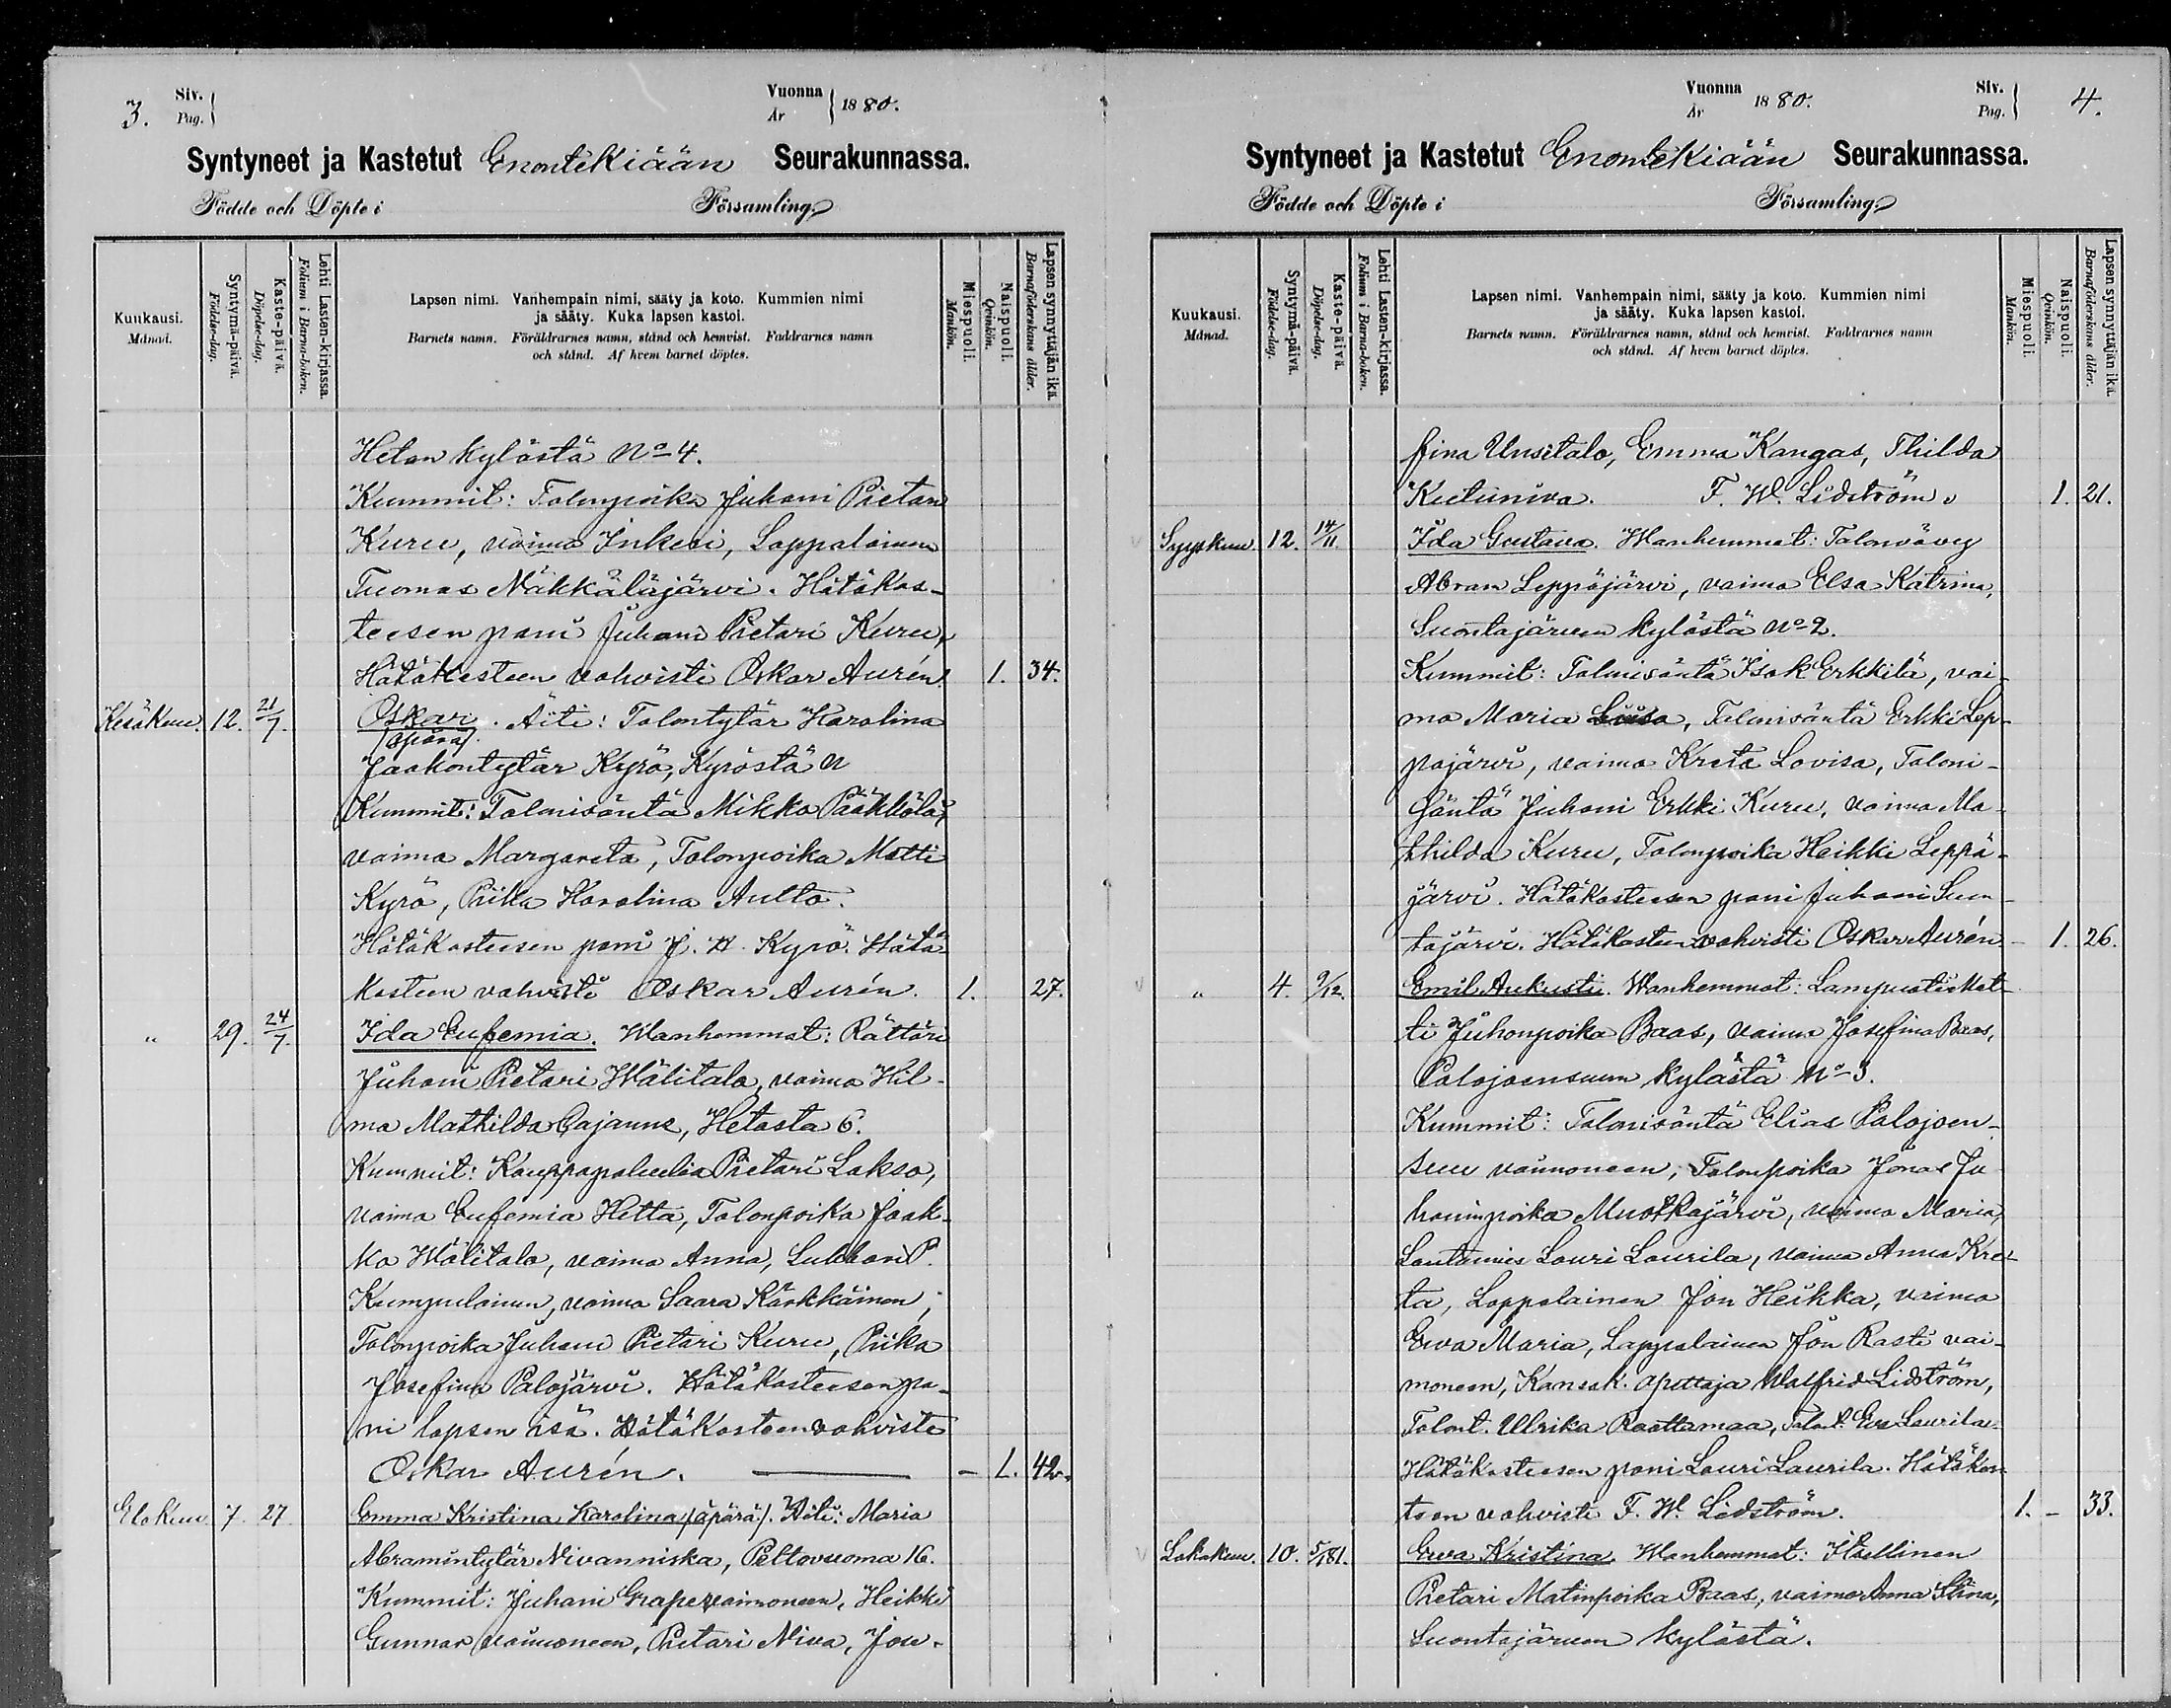 3.
Siv.
Pag.
Vuonna
År
1880.
Syntyneet ja Kastetut Enontekiään Seurakunnassa.
Födde och Döpte i Församling.
Kuukausi.
Månad.
Syntymä-päivä.
Födelse-dag.
Kaste-päivä.
Döpelse-dag.
Lehti Lasten-kirjassa.
Folium i Barna-boken.
Lapsen nimi. Vanhempain nimi, sääty ja koto. Kummien nimi
ja sääty. Kuka lapsen kastoi.
Barnets namn. Föräldrarnes namn, stånd och hemvist. Faddrarnes namn
och stånd. Af hvem barnet döptes.
Miespuoli.
Mankön.
Naispuoli.
Qvinkön.
Lapsen synnyttäjän ikä.
Barnaföderskans ålder.
Hetan kylästä No 4.
Kummit: Talonpoika Juhani Pietari
Kuru, vaimo Inkeri, Lappalainen
Tuomas Näkkäläjärvi. Hätäkas-
teesen pani Juhani Pietari Kuru,
Hätäkasteen vahvisti Oskar Aurén. 1. 34.
Kesäkuu. 12. 21/7. Oskari. Äiti: Talontytär Karolina
(äpärä).
Jaakontytär Kyrö, Kyröstä N
Kummit: Talonisäntä Mikko Pääkkölä,
vaimo Margareta, Talonpoika Matti
Kyrö, Piika Karolina Aulto.
Hätäkasteesen pani J. H. Kyrö. Hätä-
kasteen vahvisti Oskar Aurén. 1. 27.
" 29. 24/7. Ida Eufemia. Wanhemmat: Rättäri
Juhani Pietari Wälitalo, vaimo Hil-
ma Mathilda Cajanus, Hetasta 6.
Kummit: Kauppapalvelia Pietari Lakso,
vaimo Eufemia Hetta, Talonpoika Jaak-
ko Wälitalo, vaimo Anna, Lukkari P.
Kumpulainen, vaimo Saara Kärkkäinen,
Talonpoika Juhani Pietari Kuru, Piika
Josefina Palojärvi. Hätäkasteesen pa-
ni lapsen isä. Hätäkasteen vahvisti
Oskar Aurén. - 1. 42.
Elokuu 7. 27 Emma Kristina Karolina (äpärä). Äiti: Maria
Abramintytär Nivanniska, Peltovuoma 16.
Kummit: Juhani Grape vaimoneen, Heikki
Gunnar vaimoneen, Pietari Niva, Jose-
Vuonna
År
1880.
Siv.
Pag.
4.
Syntyneet ja Kastetut Enontekiään Seurakunnassa.
Födde och Döpte i Församling.
Kuukausi.
Månad.
Syntymä-päivä.
Födelse-dag.
Kaste-päivä.
Döpelse-dag.
Lehti Lasten-kirjassa.
Folium i Barna-boken.
Lapsen nimi. Vanhempain nimi, sääty ja koto. Kummien nimi
ja sääty. Kuka lapsen kastoi.
Barnets namn. Föräldrarnes namn, stånd och hemvist. Faddrarnes namn
och stånd. Af hvem barnet döptes.
Miespuoli.
Mankön.
Naispuoli.
Qvinkön.
Lapsen synnyttäjän ikä.
Barnaföderskans ålder.
fina Uusitalo, Emma Kangas, Thilda
Kutuniva. F. W. Lidström. 1. 21.
Syyskuu. 12. 14/11. Ida Gustava. Wanhemmat: Talonvävy
Abram Leppäjärvi, vaimo Elsa Katrina,
Suontajärven kylästä No 2.
Kummit: Talonisäntä Isak Erkkilä, vai-
mo Maria Liisa, Talonisäntä Erkki Lep-
päjärvi, vaimo Kreta Lovisa, Taloni-
säntä Juhani Erkki Kuru, vaimo Ma-
thilda Kuru, Talonpoika Heikki Leppä-
järvi. Hätäkasteesen pani Juhani Suon-
tajärvi. Hätäkasteen vahvisti Oskar Aurén - 1. 26.
" 4. 9/12. Emil Aukusti. Wanhemmat: Lampuoti Mat-
ti Juhonpoika Baas, vaimo Josefina Baas,
Palojoensuun kylästä No 3.
Kummit: Talonisäntä Elias Palojoen-
suu vaimoneen, Talonpoika Jonas Ju-
haninpoika Muotkajärvi, vaimo Maria,
Lautamies Lauri Laurila, vaimo Anna Kre-
ta, Lappalainen Jon Heikka, vaimo
Ewa Maria, Lappalainen Jon Rasti vai-
moneen, Kansak. opettaja Walfrid Lidström,
Talont. Ulrika Raattamaa, Talont. Ewa Laurila.
Hätäkasteesen pani Lauri Laurila. Hätäkas-
teen vahvisti F. W. Lidström. 1. - 33.
Lokakuu. 10. 5/181. Ewa Kristina. Wanhemmat: Itsellinen
Pietari Matinpoika Baas, vaimo Anna Stina,
Suontajärven kylästä.